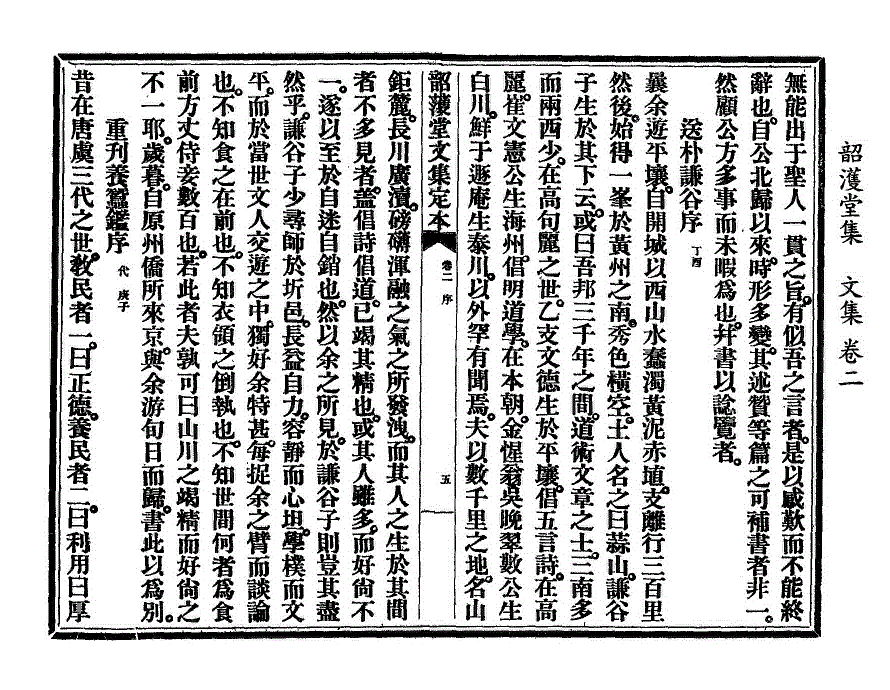 韶濩堂集　文集　卷二
無能出于聖人一貫之旨。有似吾之言者。是以感歎而不能終
辭也。自公北歸以來。時形多變。其述贊等篇之可補書者非一。
然顧公方多事而未暇爲也。幷書以諗覽者。
送朴謙谷序 丁酉
曩余遊平壤。自開城以西山水蠢濁。黃泥赤埴。支離行三百里
然後。始得一峯於黃州之南。秀色橫空。土人名之曰蒜山。謙谷
子生於其下云。或曰吾邦三千年之間。道術文章之士。三南多
而兩西少。在高句麗之世。乙支文德生於平壤。倡五言詩。在高
麗。崔文憲公生海州。倡明道學。在本朝。金惺翁，吳晩翠數公生
白川。鮮于遯庵生泰川。以外罕有聞焉。夫以數千里之地。名山
韶濩堂文集定本 卷二 序 五
鉅麓。長川廣瀆。磅礴渾融之氣之所發洩。而其人之生於其間
者不多見者。蓋倡詩倡道。已竭其精也。或其人雖多。而好尙不
一。遂以至於自迷自銷也。然以余之所見。於謙谷子則豈其盡
然乎。謙谷子少尋師於圻邑。長益自力。容靜而心坦。學樸而文
平。而於當世文人交遊之中。獨好余特甚。每捉余之臂而談論
也。不知食之在前也。不知衣領之倒執也。不知世間何者爲食
前方丈侍妾數百也。若此者夫孰可曰山川之竭精而好尙之
不一耶。歲暮。自原州僑所來京。與余游旬日而歸。書此以爲別。
重刊養蠶鑑序 代 庚子
昔在唐虞三代之世。敎民者一。曰正德。養民者二。曰利用曰厚